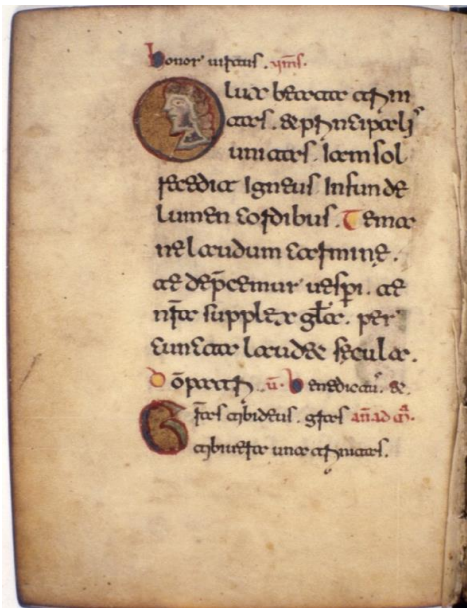 honor uirtus . ymñs.
O lux beata trin
itas. & principalis
unitas. Iam sol
recedit Igneus Infunde
lumen cordibus. Te ma
ne laudum carmine.
te dep̄cemur uesp̄i. te
nr̄a supplex gl̄a. per
cuncta laudet secula.
Dō patri. v̄. Benedictus.
Gr̄as tibi deus. gr̄as añ ad
tibi uera una trinitas.